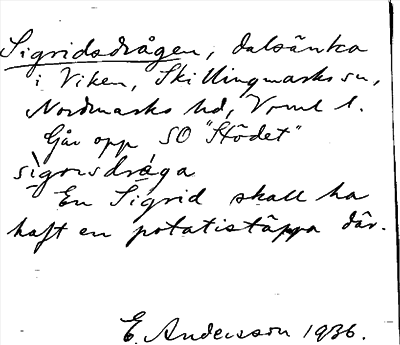 Sigridsdrågen, dalsänka
i Viken, Skillingmarks sn,
Nordmarks hd, Vrml l.
Går opp SO "Stödet"
sìgrisdrága
En Sigrid skall ha
haft en potatistäppa där.
E. Andersson 1936.